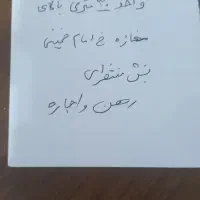 واحد ۱۰۰ متری بالای
مغازه خ امام خمینی
نبش منتظری
رهن و اجاره